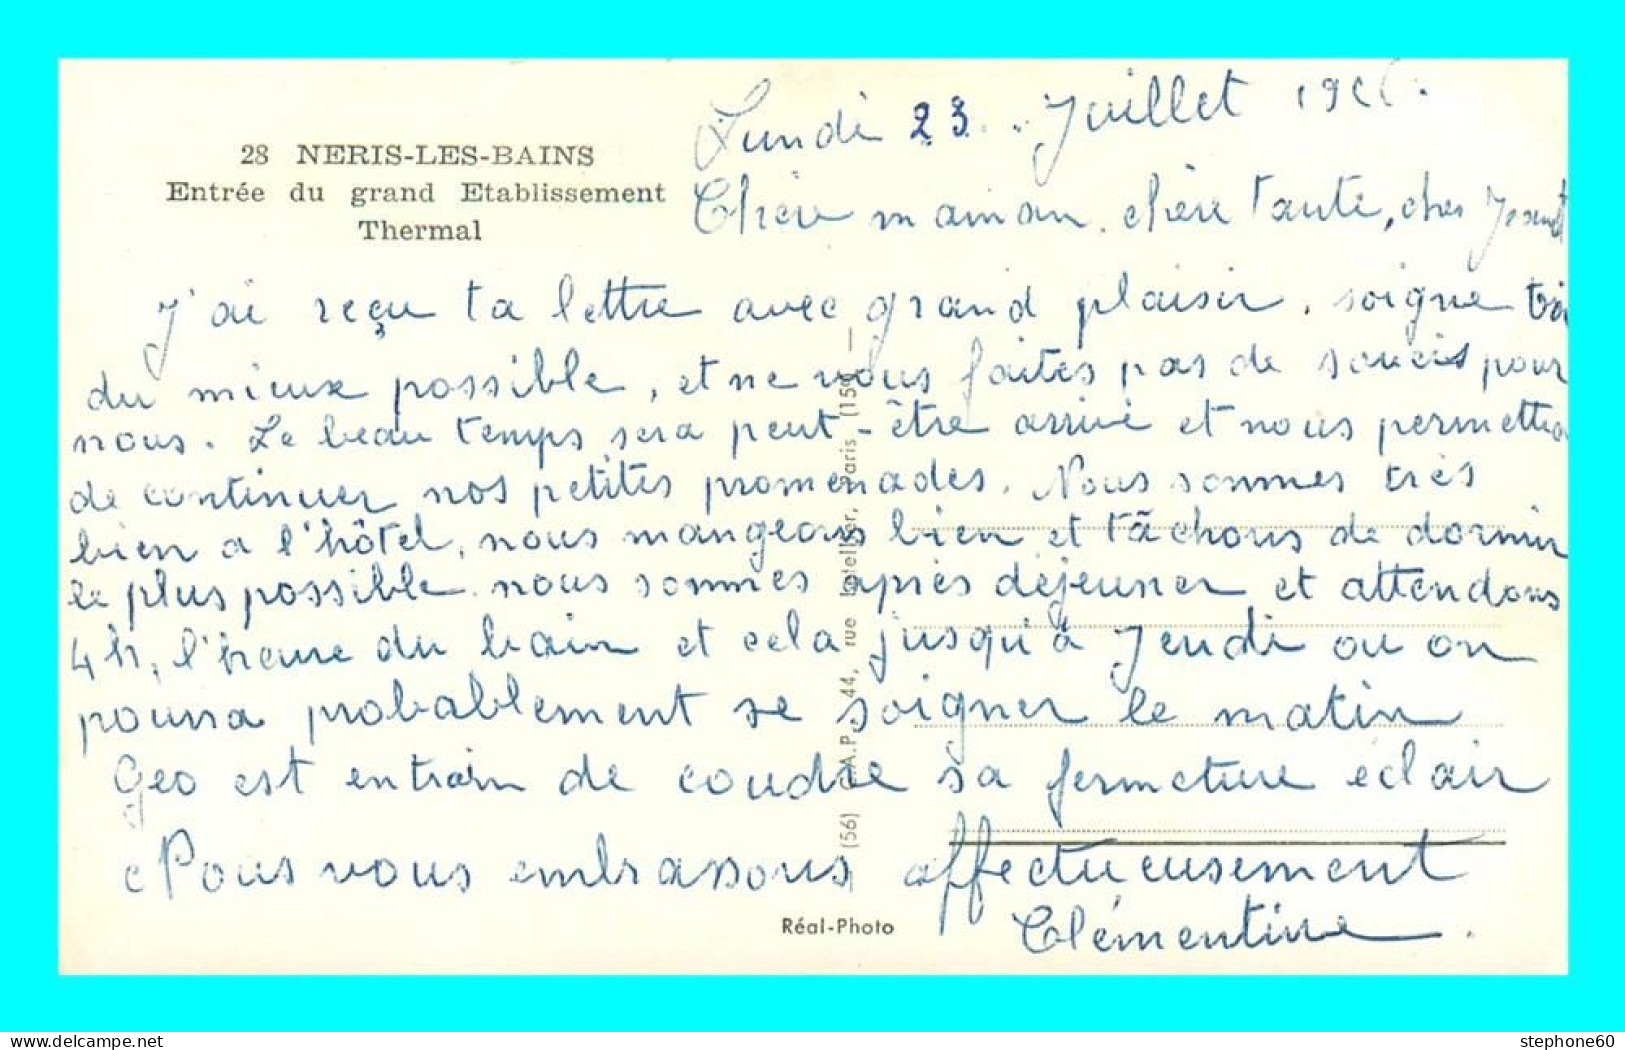 28 NERIS-LES-BAINS
Entrée du grand Etablissement
Thermal
Lundi 23 Juillet
Chère maman, chère tante, cher
J'ai reçu ta lettre avec grand plaisir, soigne toi
du mieux possible, et ne vous faites pas de soucis pour
nous. Le beau temps sera peut-être arrivé et nous permettra
de continuer nos petites promenades. Nous sommes très
bien a l'hôtel, nous mangeons bien et tâchons de dormir
le plus possible. nous sommes après déjeuner et attendons
4h, l'heure du bain et cela jusqu'à Jeudi ou on
pourra probablement se soigner le matin
Geo est en train de coudre sa fermeture éclair
Nous vous embrassons affectueusement
Clémentine.
(56) A.P. 44, rue Letellier, Paris (15e) —
Réal-Photo
delcampe.net
stephone60